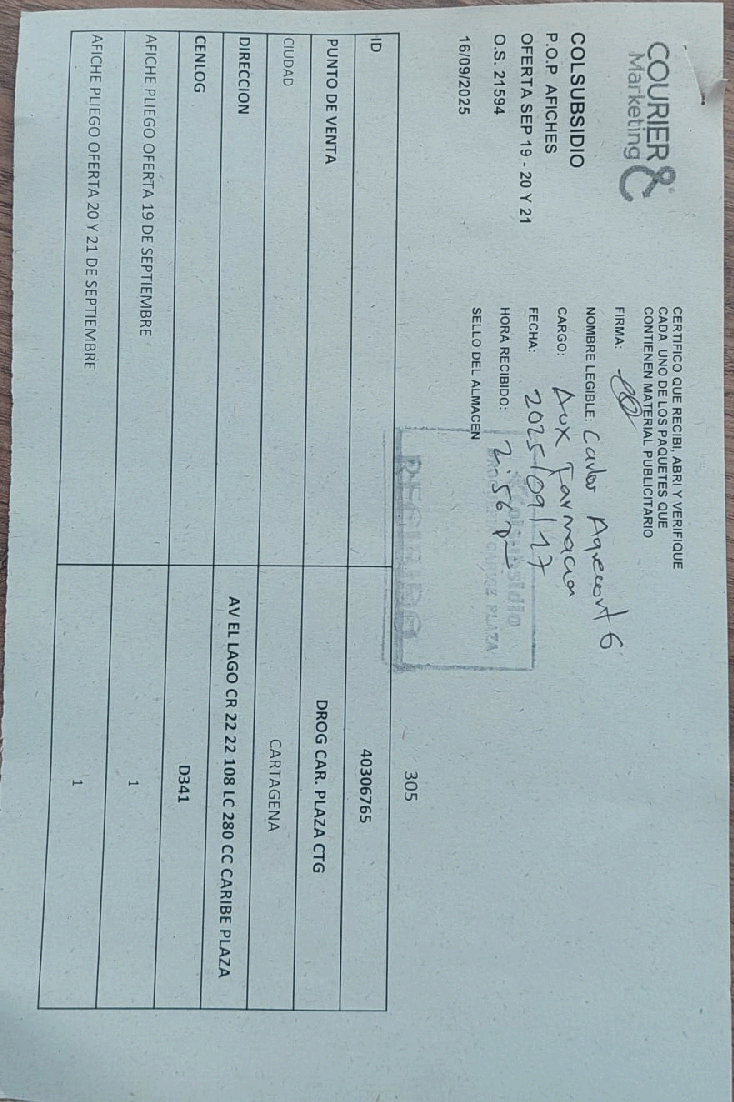 COURIER &
Marketing
COLSUBSIDIO
P.O.P AFICHES
OFERTA SEP 19 - 20 Y 21
O.S. 21594
16/09/2025
CERTIFICO QUE RECIBI, ABRI Y VERIFIQUE
CADA UNO DE LOS PAQUETES QUE
CONTIENEN MATERIAL PUBLICITARIO
FIRMA:
NOMBRE LEGIBLE: Carlos
CARGO: Aux Farmacia
FECHA: 2025/09/17
HORA RECIBIDO: 2:56 p
SELLO DEL ALMACEN
Colsubsidio
PLAZA
RECIBIDO
305
ID 40306765
PUNTO DE VENTA DROG CAR. PLAZA CTG
CIUDAD CARTAGENA
DIRECCION AV EL LAGO CR 22 22 108 LC 280 CC CARIBE PLAZA
CENLOG D341
AFICHE PLIEGO OFERTA 19 DE SEPTIEMBRE 1
AFICHE PLIEGO OFERTA 20 Y 21 DE SEPTIEMBRE 1